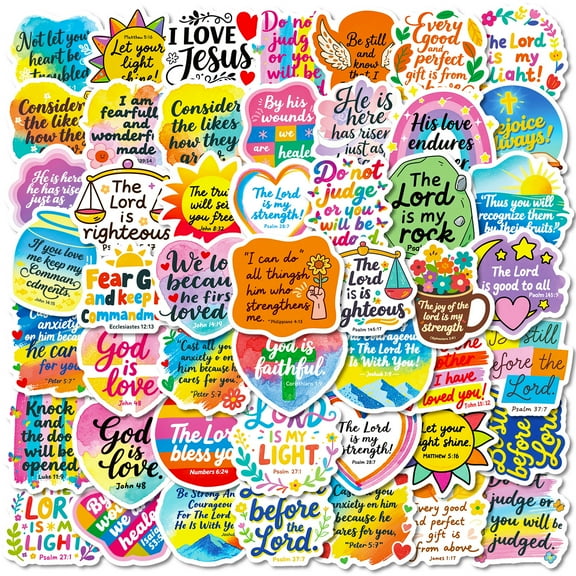 Not let your
heart be
troubled
Matthew 5:16
Let your
light
shine!
I LOVE
Jesus
Do no
judg
or yo
will be
Be still and
know
that I
Every
Good
and
perfect
gift is from
The Lord
is my
light!
Consider
the likes
how they
I am
fearfull
and
wonderfl
made
139:14
Consider
the likes
how they
ar
By his
wounds
we
are
heale
He is
here
has risen
just as
His love
endures
Rejoice
always!
He is here
he has rise
just as
The
Lord
is
righteous
Psalm 145:17
The tru
will set
you free
John 8:32
The Lord
is my
strength!
Psalm 28:7
Do not
judge
or you
will be
The
Lord
is my
rock
"Thus you will
recognize them
by their fruits."
If you love
me keep my
Comman
cdments.
John 14:15
Fear G
and keep
Commandm
Ecclesiastes 12:13
We lo
becau
he firs
loved
John 14:19
"I can do"
all thingsh
him who
strengthens
me.
"Philippians 4:13
The
Lord
is is
righteous
Psalm 145:17
The joy of the
lord is my
strength.
The Lord
is good to all
Psalm 145:9
anxiety
on him
because
he cares
for you.
"Peter 5:7"
God
is
love.
John 48
"Cast all your
anxiety on
him because he
cares for you."
"Peter 5:7"
God is
faithful.
Corinthians 1:9
For The Lord He
Is With You!
Joshua 1:9
other
I have
loved you!
John 15:12
still
before the
Lord.
Psalm 37:7
Knock
and the
doo
will be
opened
Luke 11:9
God
is
love.
John 48
The Lord
bless yo
Numbers 6:24
LORD
IS MY
LIGHT
Psalm 27:1
The Lord
is my
strength!
Psalm 28:7
Let your
light shine.
MATTHEW 5:16
before
Lord
LORD
IS M
LIGHT
Psalm 27:1
By
wo
we
heale
Isaia
53:5
Be Strong An
Courageous
For The Lord
He Is With Yo
before
the
Lord.
Psalm 37:7
Cast all you
anxiety on him
because he
cares for you.
"Peter 5:7"
very good
nd perfect
gift is
from above
James 1:17
Do not
judge or
you will be
judged.